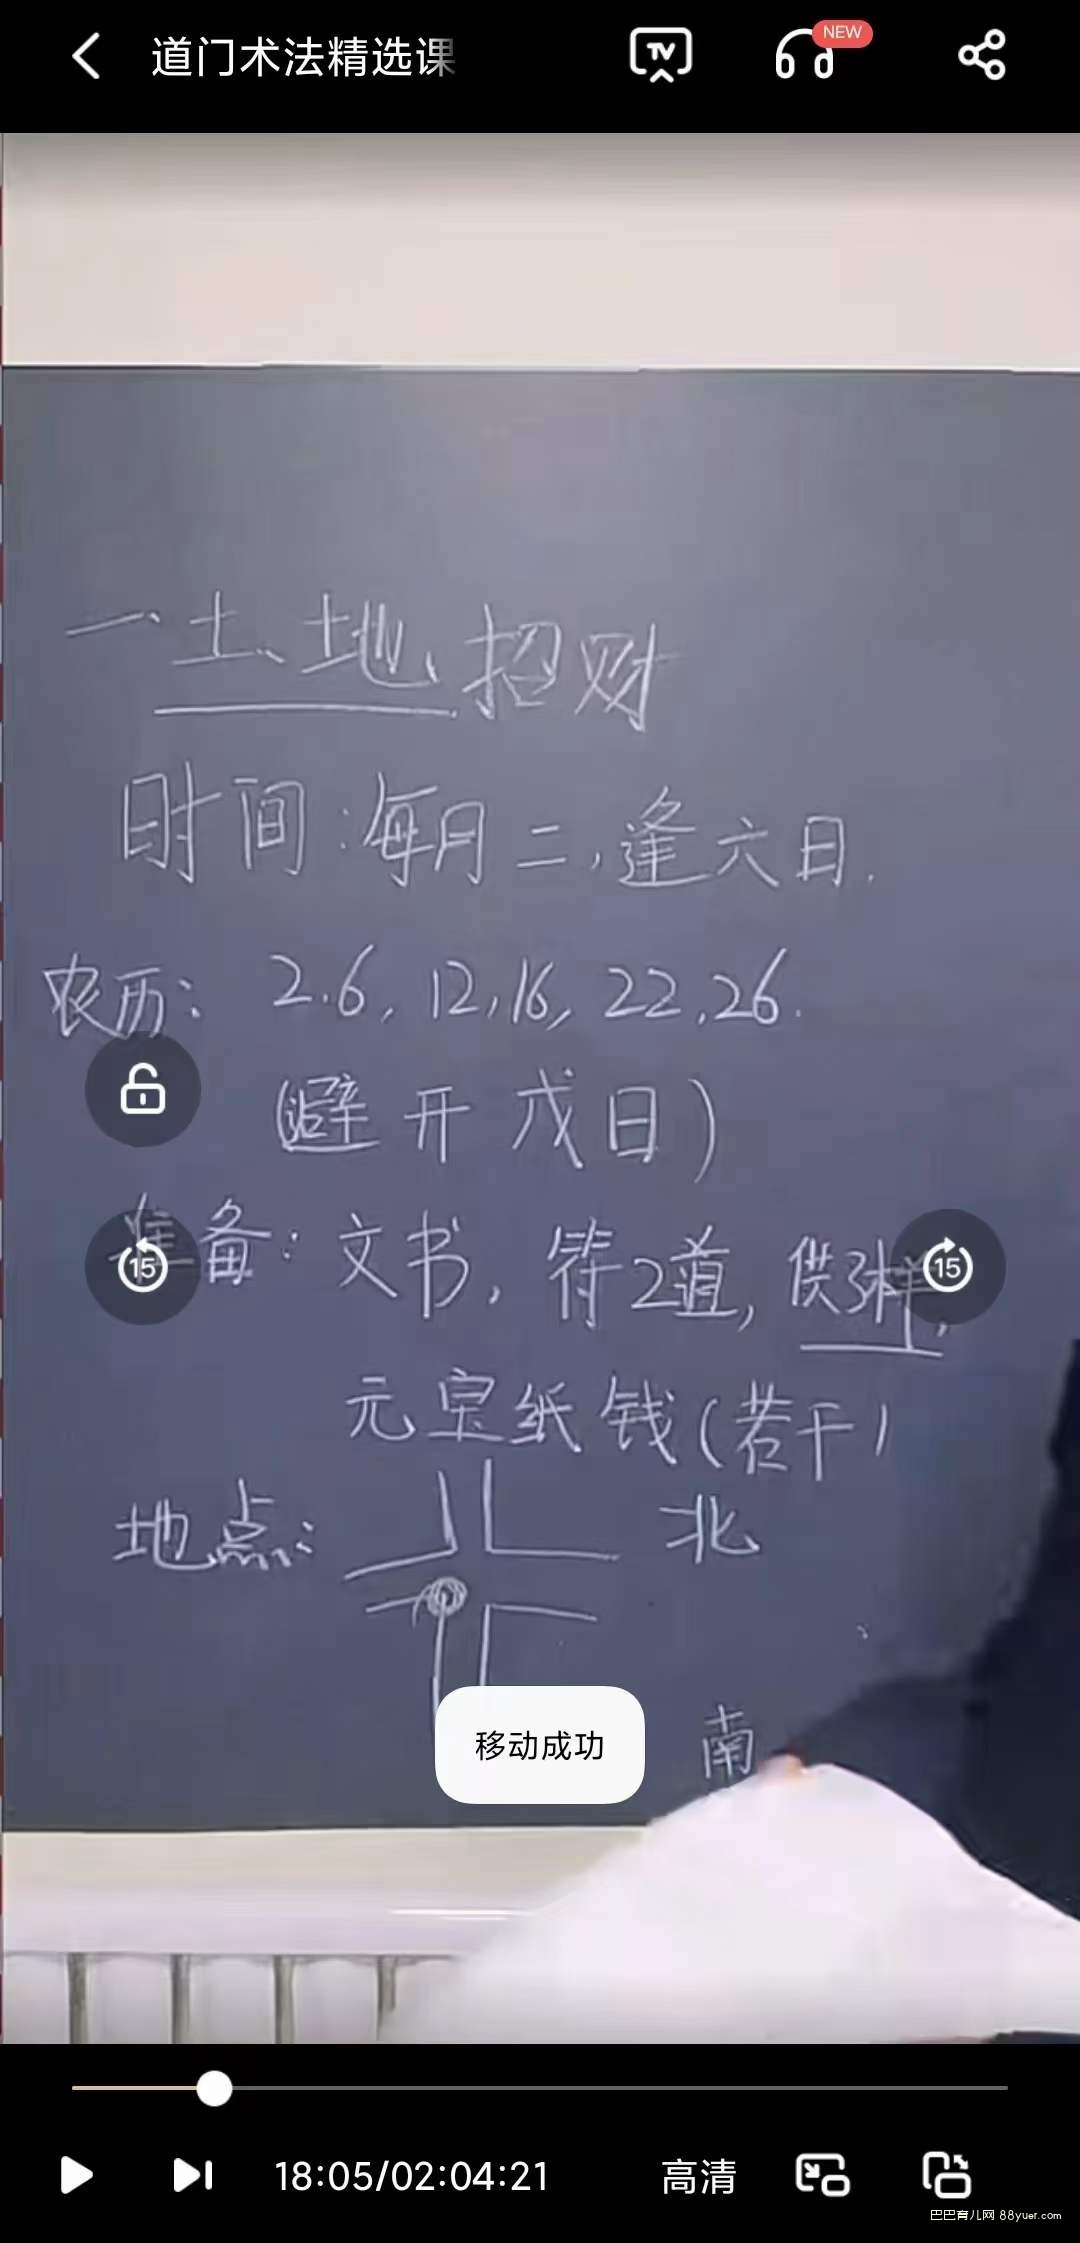 道门术法精选课
NEW
一、土地招财
时间:每月二,逢六日.
农历: 2.6, 12,16, 22,26.
(避开戊日)
准备: 文书, 符2道, 供3样,
元宝纸钱(若干)
地点:
北
南
移动成功
15
15
18:05/02:04:21
高清
巴巴育儿网 88yuer.com